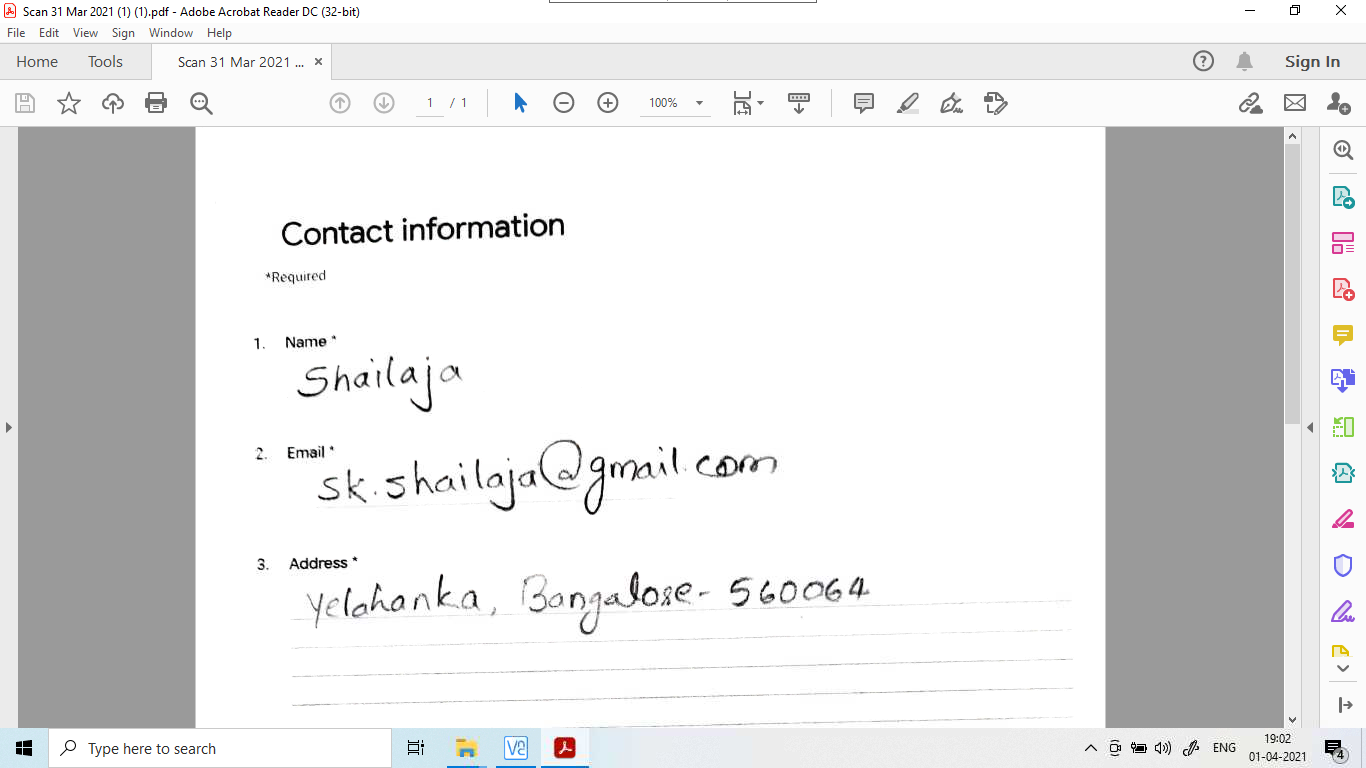 Scan 31 Mar 2021 (1) (1).pdf - Adobe Acrobat Reader DC (32-bit)
File Edit View Sign Window Help
Home Tools Scan 31 Mar 2021 ... × Sign In
1 / 1 100%
Contact information
*Required
1. Name *
Shailaja
2. Email *
sk.shailaja@gmail.com
3. Address *
Yelahanka, Bangalore- 560064
Type here to search
ENG 19:02
01-04-2021
4